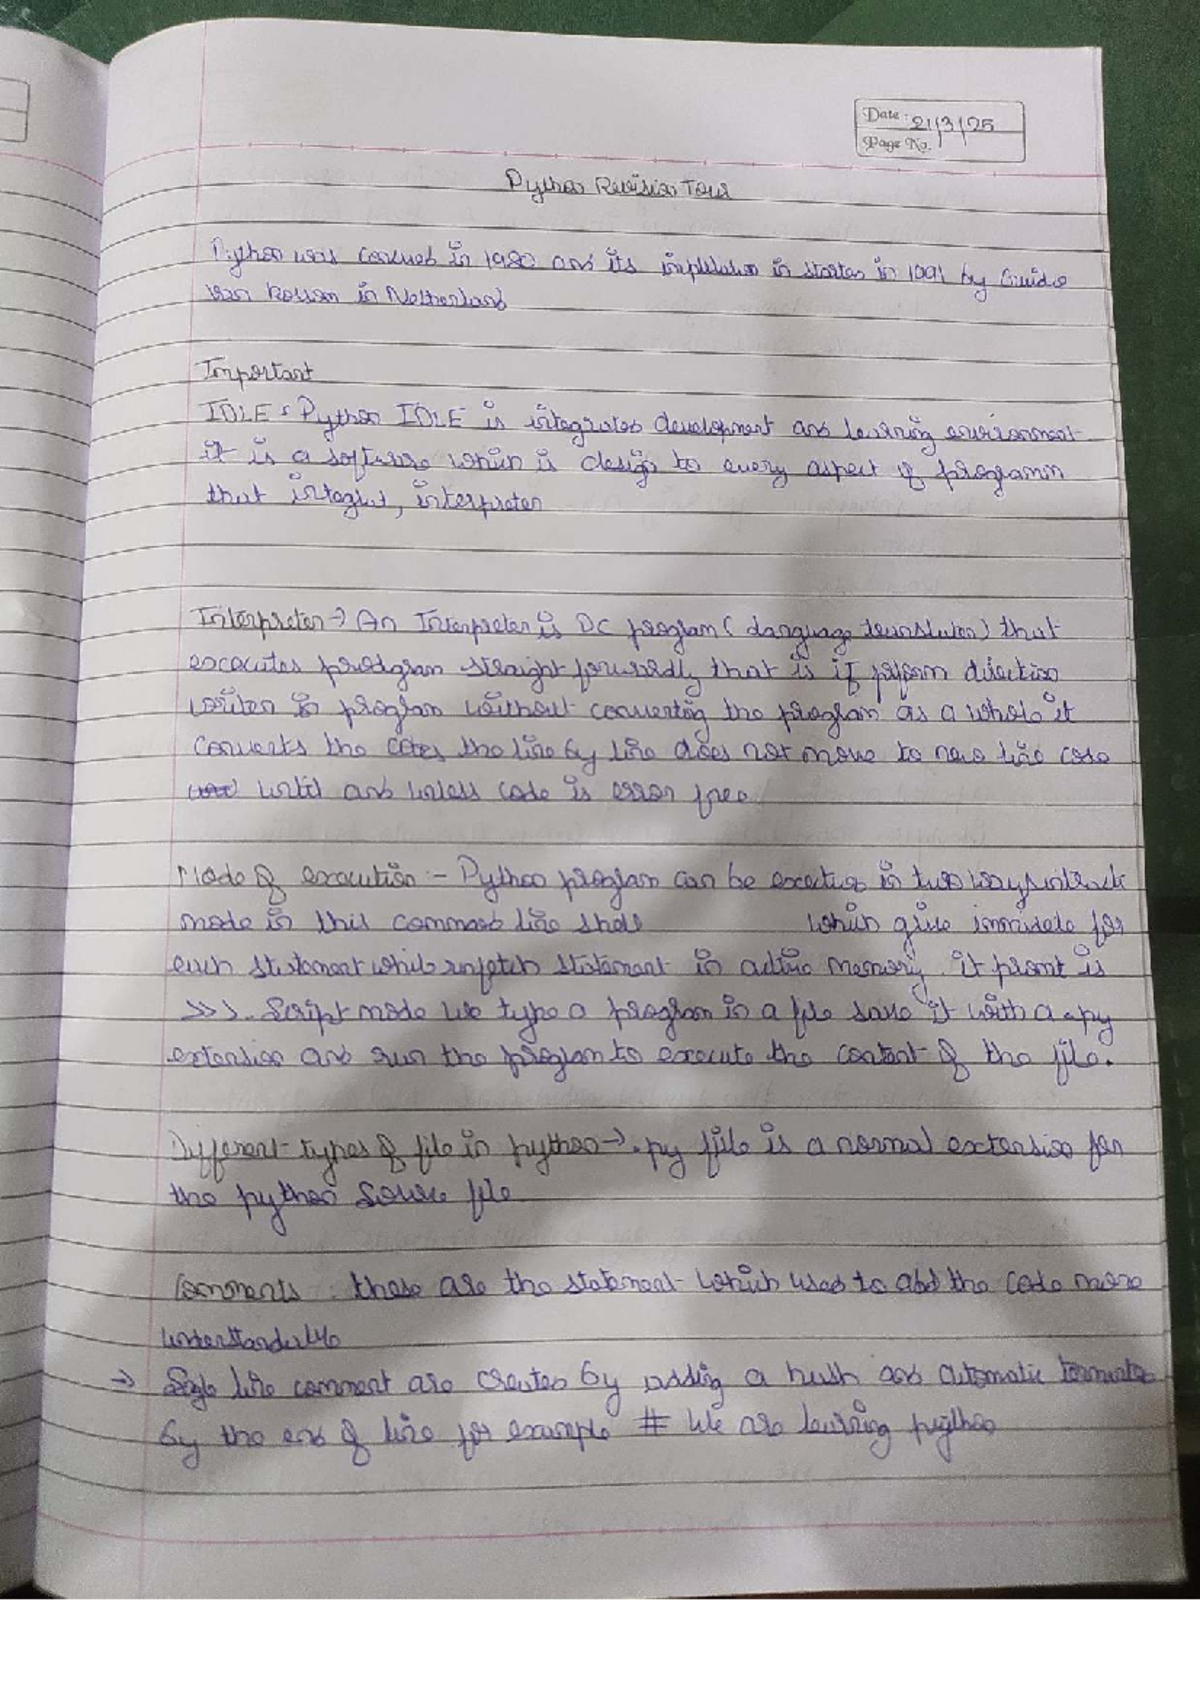 Date : 21/3/25
Page No.
Python Revision Tour
Python was in 1980 and its in started in 1991 by Guido
van Rossum in Netherland
Important
IDLE : Python IDLE is integrated development and learning environment
it is a software which is design to every aspect of programm
that , interpreter
Interpreter → An Interpreter is program ( language ) that
executes program straight forwardly that is if perform direction
written in program without converting the program as a whole it
converts the the line by line does not move to new line code
until and unless code is error free
Mode of execution :- Python program can be in two ways
mode in this command line shell which give for
each statement while statement in active memory. it promt is
>>>. Script mode we type a program in a file save it with a .py
extension and run the program to execute the content of the file.
Different types of file in python → .py file is a normal extension for
the python source file
Comments : these are the statement which used to add the code more
→ Single line comment are created by adding a hash and automatic
by the end of line for example # We are learning python